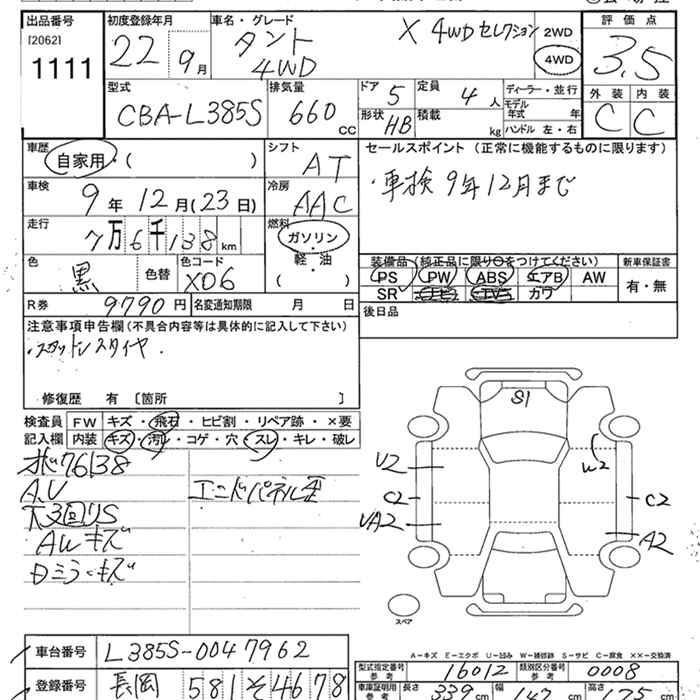 出品番号
[2062]
1111
初度登録年月
22 9月
車名・グレード
タント X 4WD セレクション
4WD
2WD
4WD
評価点
3.5
型式
CBA-L385S
排気量
660 cc
ドア 5
定員 4 人
形状 HB
積載 kg
ディーラー・並行
モデル年式 年
ハンドル 左・右
外装 内装
C C
車歴
自家用・( )
シフト
AT
セールスポイント (正常に機能するものに限ります)
・車検 9年12月まで
車検
9年12月(23日)
冷房
AAC
走行
7万6千138km
燃料
ガソリン
軽・油
( )
色
黒
色替
色コード
X06
装備品 (純正品に限り○をつけてください)
新車保証書
PS PW ABS エアB AW
SR ナビ TV カワ
有・無
R券 9790円
名変通知期限 月 日
後日品
注意事項申告欄(不具合内容等は具体的に記入して下さい)
・スタットレスタイヤ.
修復歴 有 [箇所 ]
検査員記入欄
FW キズ・飛石・ヒビ割・リペア跡・×要
内装 キズ・汚・コゲ・穴・スレ・キレ・破レ
76138
A,U
下3回りS
AWキズ
Dミラーキズ
エンドパネル歪
S1
U2
W2
C2
C2
UA2
A2
スペア
A−キズ E−エクボ U−凹み W−補修跡 S−サビ C−腐食 XX−交換済
車台番号
L385S-0047962
登録番号
長岡 581 そ 4678
型式指定番号 参考
16012
類別区分番号 参考
0008
車庫証明用 参考
長さ 339 cm
幅 147 cm
高さ cm